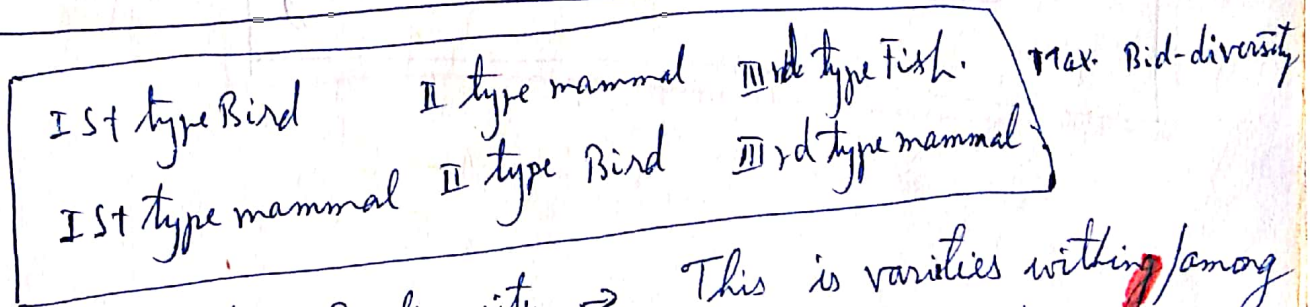 Ist type Bird II type mammal IIIrd type Fish. Max. Bid-diversity
Ist type mammal II type Bird IIIrd type mammal
This is varities withing/among